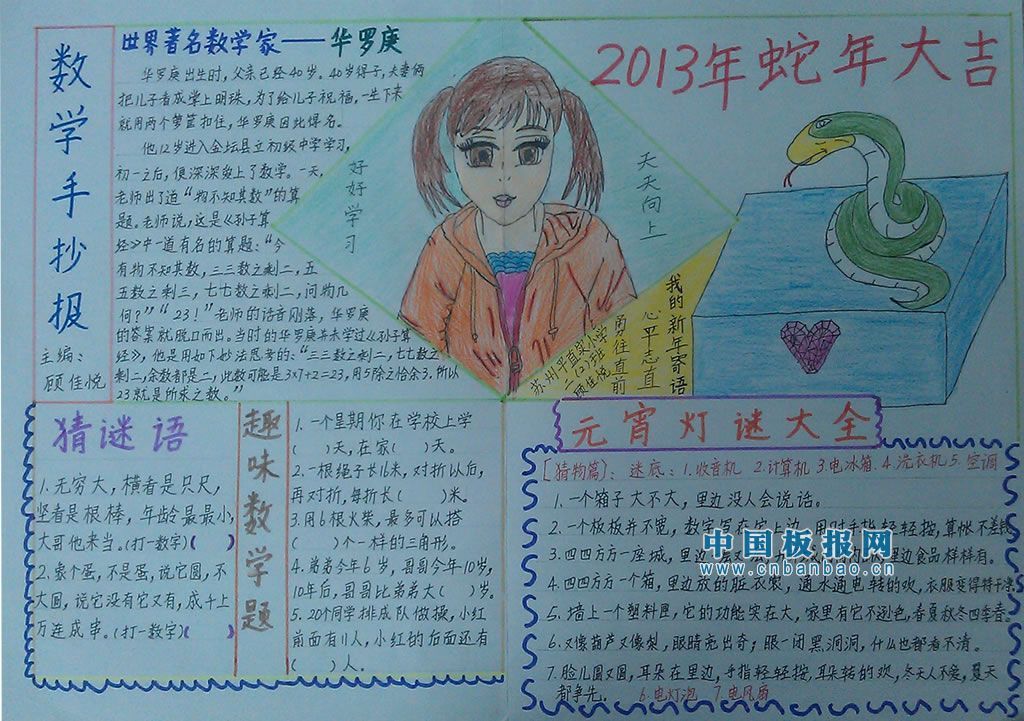 数学手抄报
主编：
顾佳悦
世界著名数学家——华罗庚
华罗庚出生时，父亲已经40岁。40岁得子，夫妻俩
把儿子看成掌上明珠，为了给儿子祝福，一生下来
就用两个箩筐扣住，华罗庚因此得名。
他12岁进入金坛县立初级中学学习，
初一之后，便深深爱上了数学。一天，
老师出了道“物不知其数”的算
题。老师说，这是《孙子算
经》中一道有名的算题：“今
有物不知其数，三三数之剩二，五
五数之剩三，七七数之剩二，问物几
何？”“23！”老师的话音刚落，华罗庚
的答案就脱口而出。当时的华罗庚并未学过《孙子算
经》，他是用如下妙法思考的：“三三数之剩二，七七数之
剩二，余数都是二，此数可能是3×7+2=23，用5除之恰余3，所以
23就是所求之数。”
好好学习
天天向上
2013年蛇年大吉
我的新年寄语
心平志直
勇往直前
苏州平直实小学
二（2）班
顾佳悦
猜谜语
1.无穷大，横看是只尺，
竖看是根棒，年龄最最小，
大哥他来当。(打一数字)( )
2.象个蛋，不是蛋，说它圆，不
大圆，说它没有它又有，成千上
万连成串。(打一数字)( )
趣味数学题
1.一个星期你在学校上学
( )天，在家( )天。
2.一根绳子长16米，对折以后，
再对折，每折长( )米。
3.用6根火柴，最多可以搭
( )个一样的三角形。
4.弟弟今年6岁，哥哥今年10岁，
10年后，哥哥比弟弟大( )岁。
5.20个同学排成队做操，小红
前面有11人，小红的后面还有
( )人。
元宵灯谜大全
[猜物篇]：迷底：1.收音机 2.计算机 3.电冰箱 4.洗衣机 5.空调
1.一个箱子大不大，里边没人会说话。
2.一个板板并不宽，数字写在它上边，用过手指轻轻按，算帐不差钱
3.四四方方一座城，里边 里边食品样样有。
4.四四方方一个箱，里边放的脏衣裳，通水通电转的欢，衣服变得特干净
5.墙上一个塑料匣，它的功能实在大，家里有它不逊色，春夏秋冬四季春。
6.又像葫芦又像梨，眼睛亮出奇；眼一闭黑洞洞，什么也都看不清。
7.脸儿圆又圆，耳朵在里边，手指轻轻按，耳朵转的欢，冬天人不爱，夏天
都争先。 6.电灯泡 7.电风扇
中国板报网
www.cnbanbao.cn